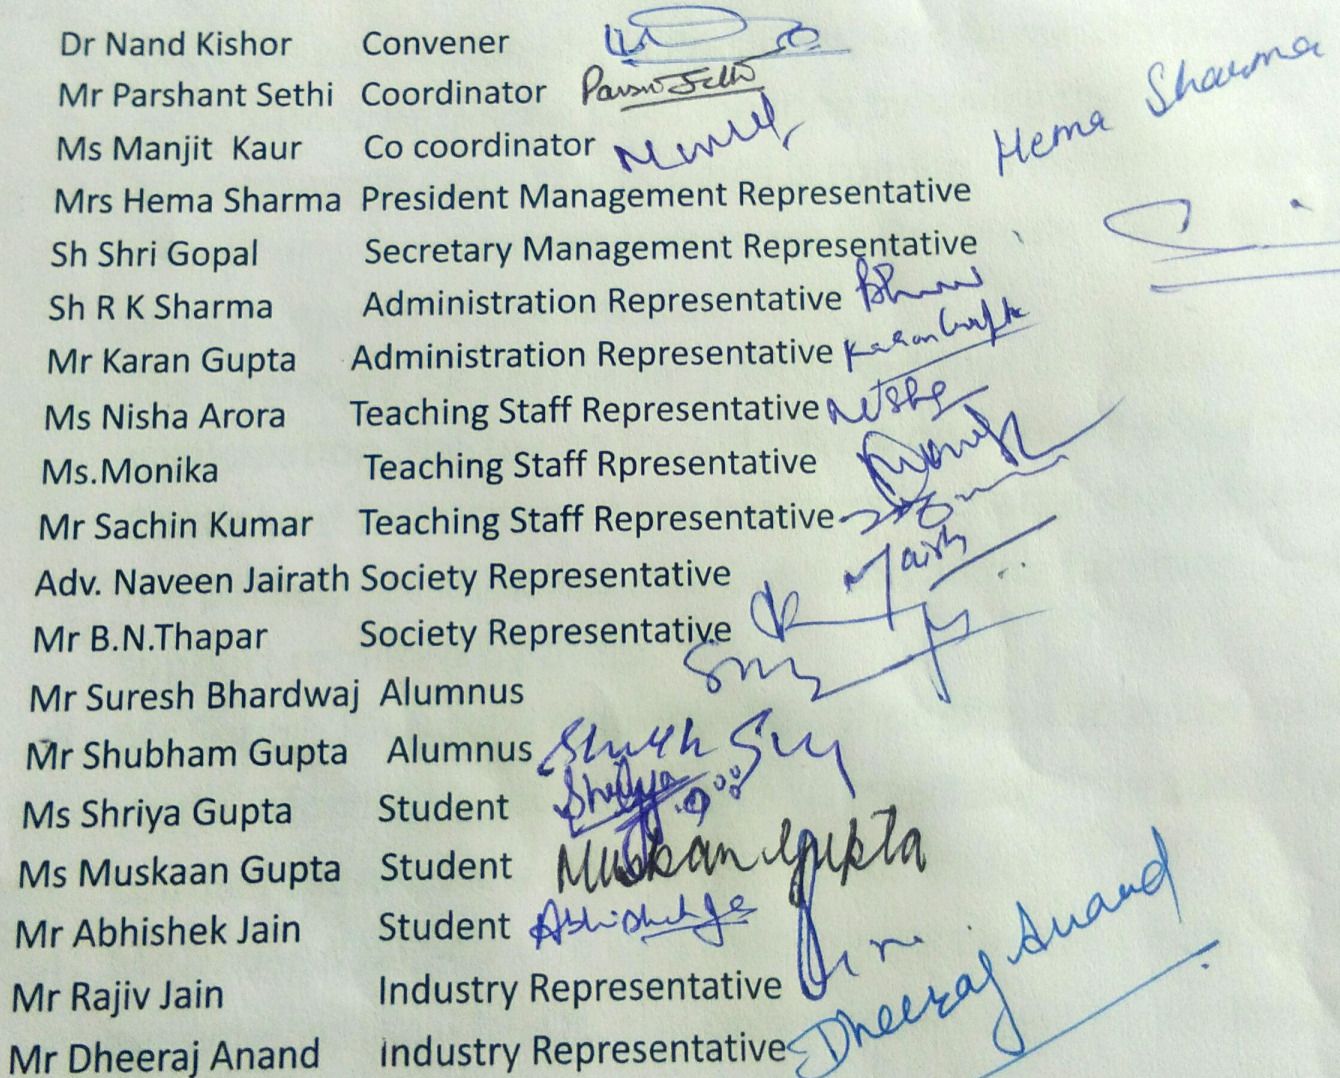 Dr Nand Kishor Convener
Mr Parshant Sethi Coordinator
Ms Manjit Kaur Co coordinator
Hema Sharma
Mrs Hema Sharma President Management Representative
Sh Shri Gopal Secretary Management Representative
Sh R K Sharma Administration Representative
Mr Karan Gupta Administration Representative Karan Gupta
Ms Nisha Arora Teaching Staff Representative
Ms.Monika Teaching Staff Rpresentative
Mr Sachin Kumar Teaching Staff Representative
Adv. Naveen Jairath Society Representative
Mr B.N.Thapar Society Representative
Mr Suresh Bhardwaj Alumnus
Mr Shubham Gupta Alumnus
Ms Shriya Gupta Student
Ms Muskaan Gupta Student Muskan Gupta
Mr Abhishek Jain Student
Mr Rajiv Jain Industry Representative
Mr Dheeraj Anand Industry Representative Dheeraj Anand